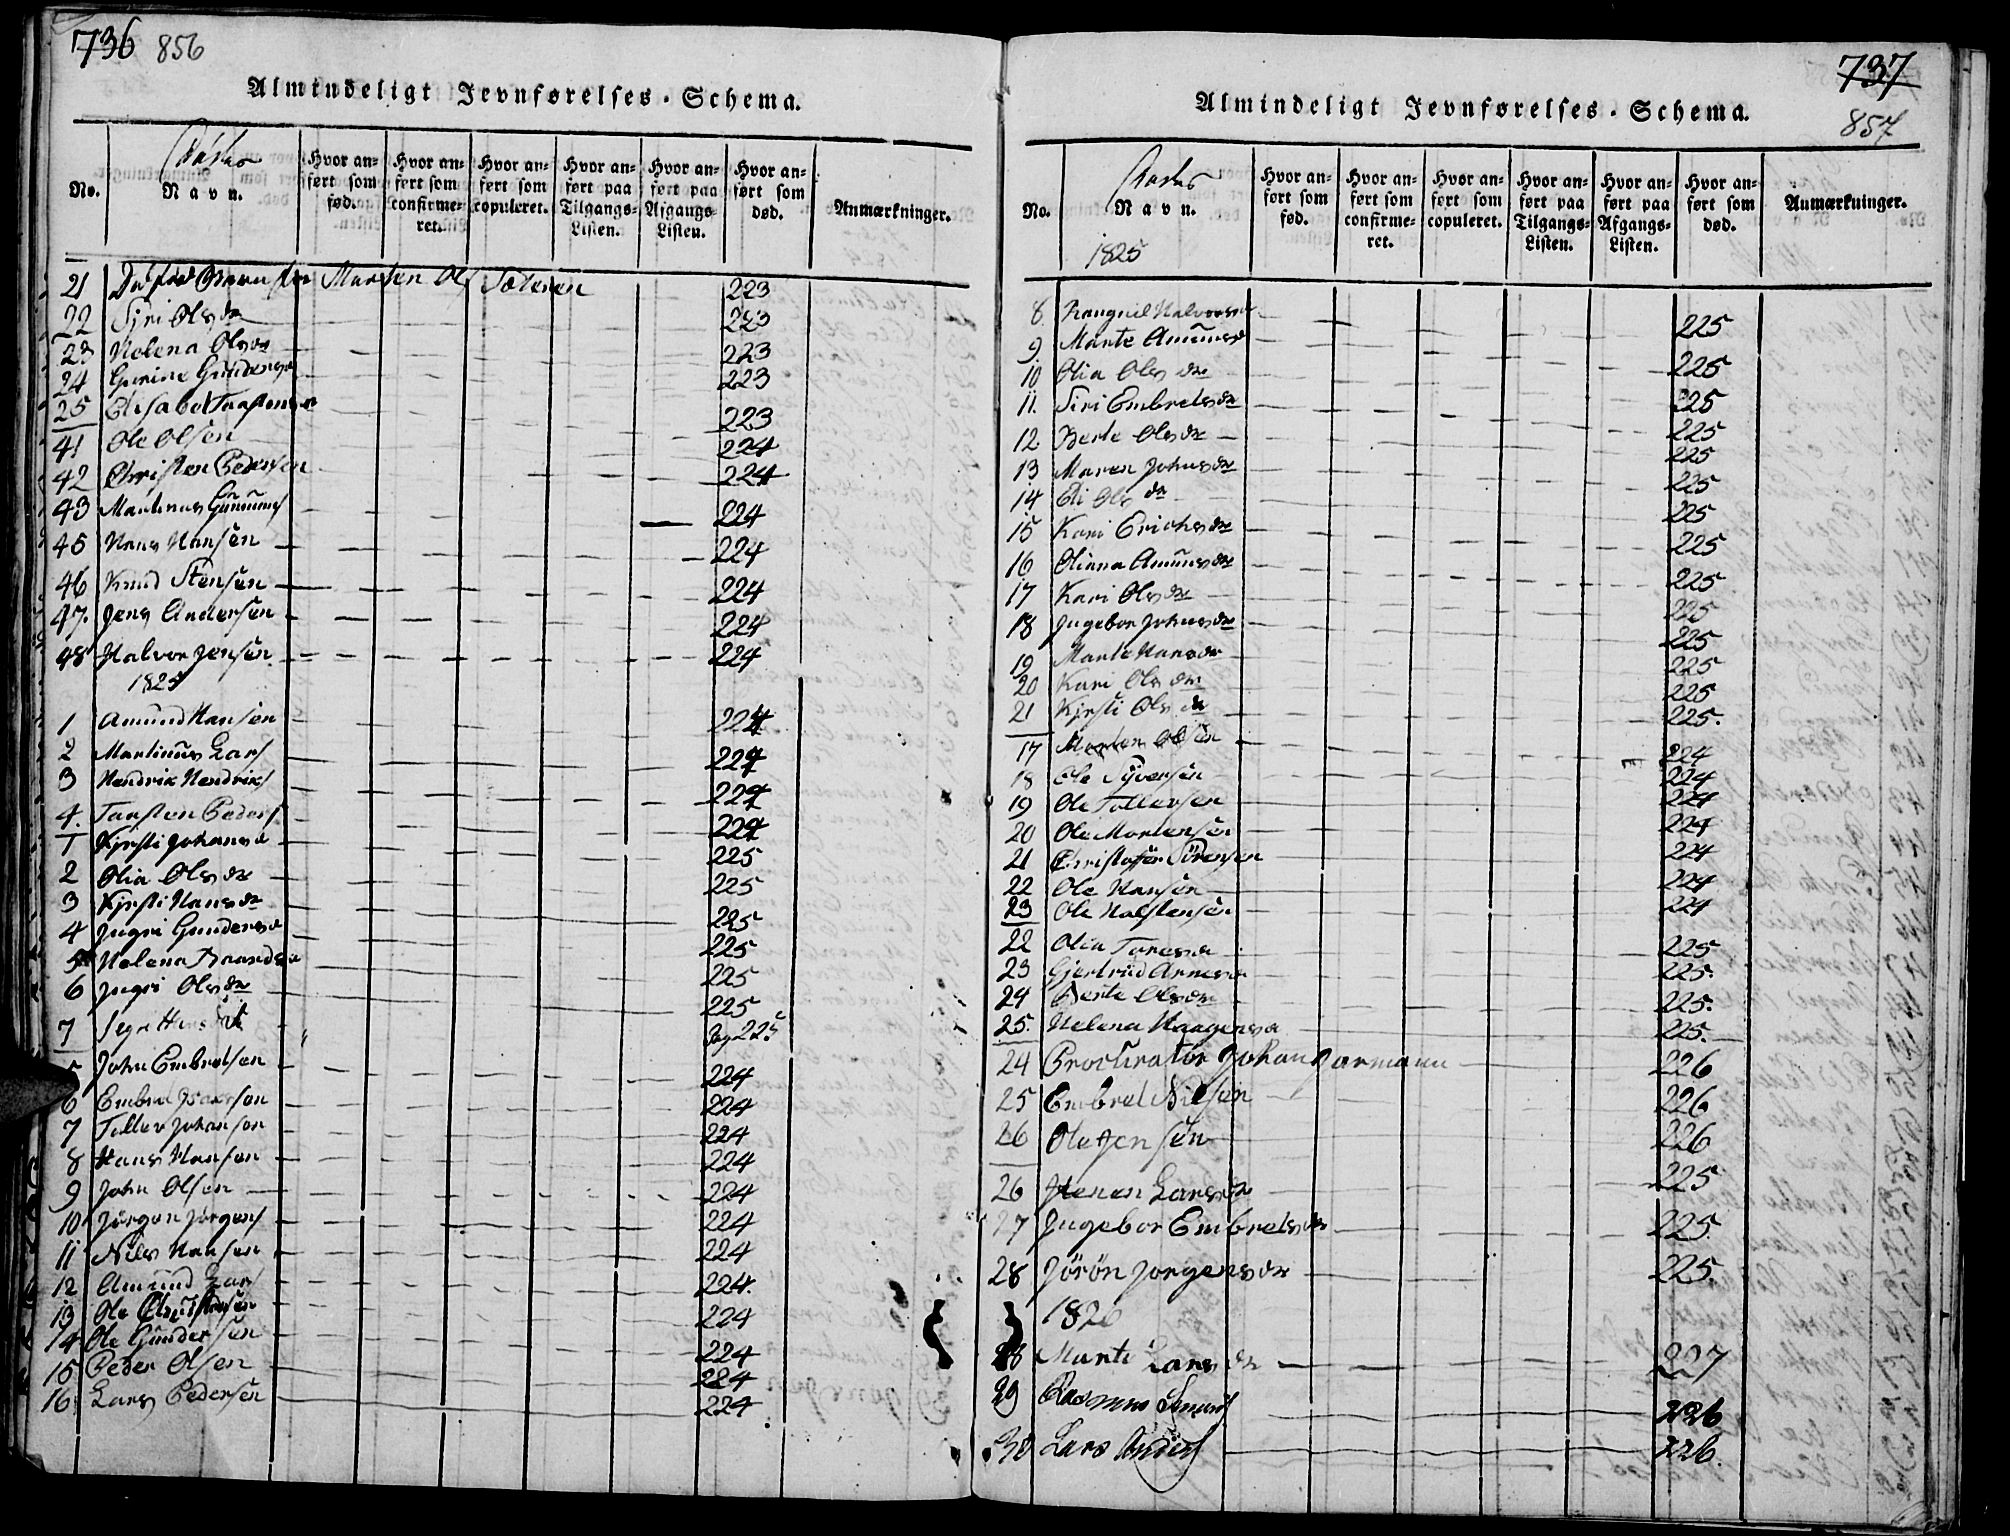 736 856
Almindeligt Jevnførelses-Schema.
No. Navn. Hvor anført som fød. Hvor anført som confirmeret. Hvor anført som copuleret. Hvor anført paa Tilgangs-Listen. Hvor anført paa Afgangs-Listen. Hvor anført som død. Anmærkninger.
21 Morten Ols Sæteren 223
22 Siri Olsdr 223
23 Helena Olsdr 223
24 Gurine Gundersd 223
25 Elisabet Taastensdr 223
41 Ole Olsen 224
42 Christen Pedersen 224
43 Martinus 224
45 Hans Hansen 224
46 Knud Stensen 224
47. Jens Andersen 224
48 Halvor Jensen 224
1825
1 Amund Hansen 224
2 Martinus Lars 224
3 Hendrik Hendriks 224
4. Taasten Peders 224
1 Kjersti Johansd 225
2 Olia Olsdr 225
3 Kjersti Hansdr 225
4 Ingri Gundersd 225
5 Helena 225
6 Ingri Olsdr 225
7 225
5 John Embretsen 224
6 Embret 224
7 Tollev Johansen 224
8 Hans Hansen 224
9 John Olsen 224
10 Jørgen Jørgens 224
11 Nils Hansen 224
12 Amund Lars 224.
13 Ole Christensen 224
14 Ole Gundersen 224
15 Peder Olsen 224
16. Lars Pedersen 224
737
857
Almindeligt Jevnførelses-Schema.
No. Navn. Hvor anført som fød. Hvor anført som confirmeret. Hvor anført som copuleret. Hvor anført paa Tilgangs-Listen. Hvor anført paa Afgangs-Listen. Hvor anført som død. Anmærkninger.
1825
8. Rangnil Halvorsdr 225
9. Marte Amunsd 225
10 Olia Olsdr 225
11. Siri Embretsdr 225
12 Berte Olsdr 225
13 Maren Johnsdr 225
14 Eli Olsdr 225
15 Kari Erichsdr 225
16 Oliana Amunsdr 225
17 Kari Olsdr 225
18 Ingebor Johnsdr 225
19 Marte Hansdr 225
20 Kari Olsdr 225
21 Kjersti Olsdr 225.
17 Morten Olsen 224
18 Ole Syversen 224
19 Ole Tollersen 224
20 Ole Mortensen 224
21 Christofer Sørensen 224
22 Ole Hansen 224
23 Ole Halstensen 224
22 Olia Toresd 225
23 Gjertrud Arnesd 225.
24 Berte Olsdr 225.
25. Helena Haagensd 225.
24 Procurator Johan Jarmann 226
25 Embret Nilsen 226
26 Ole Jensen 226
26 Larsdr 225
27 Ingebor Embretsdr 225.
28 Jörön Jorgensdr 225.
1826
28 Marti Larsdr 227
29 Rasmus 226
30 Lars Anders 226.